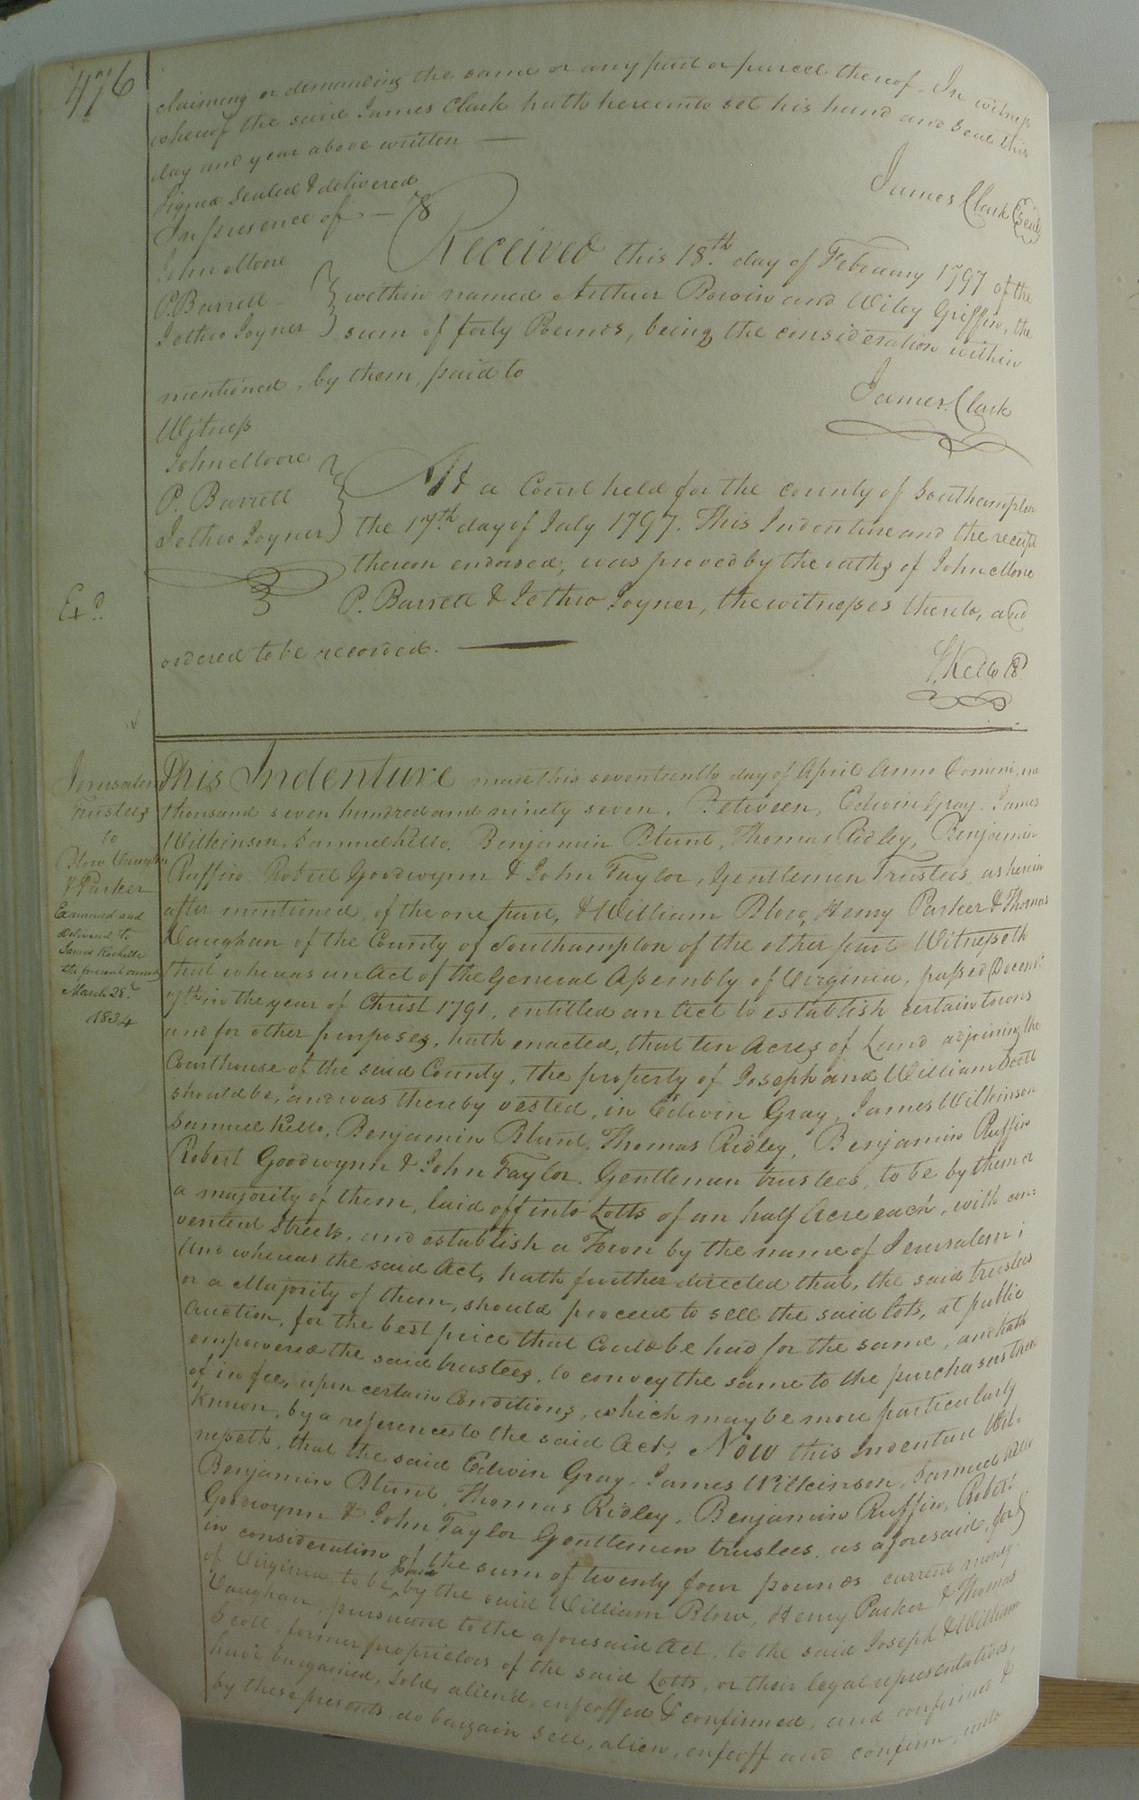 476
claiming or demanding the same or any part or parcel thereof. In witness
whereof the said James Clark hath hereunto set his hand and seal this
day and year above written —
Signed Sealed & delivered
In presence of —
James Clark (Seal)
John Moore
P. Barrett
Jethro Joyner
Received this 18th day of February 1797 of the
within named Arthur Bowin and Wiley Griffin, the
sum of forty Pounds, being the consideration within
mentioned, by them paid to
James Clark
Witness
John Moore
P. Barrett
Jethro Joyner
At a Court held for the county of Southampton
the 17th day of July 1797. This Indenture and the receipt
thereon endorsed, was proved by the oaths of John Moore
P. Barrett & Jethro Joyner, the witnesses thereto, and
ordered to be recorded.
Exd
S. Kello
Jerusalem
Trustees
to
Blow Vaughan
& Parker
Examined and
delivered to
James Rochelle
the present owner
March 28
1834
This Indenture made this seventeenth day of April Anno Domini, one
thousand seven hundred and ninety seven. Between, Edwin Gray. James
Wilkinson, Samuel Kello, Benjamin Blunt, Thomas Ridley, Benjamin
Ruffin Robert Goodwynn & John Taylor, Gentlemen Trustees, as herein
after mentioned, of the one part, & William Blow, Henry Parker & Thomas
Vaughan of the County of Southampton of the other part Witnesseth
that, whereas an Act of the General Assembly of Virginia, passed Decem:
7th in the year of Christ 1791, entitled an Act to establish certain towns
and for other purposes, hath enacted, that ten Acres of Land adjoining the
Courthouse of the said County, the property of Joseph and William Scott
should be, and was thereby vested, in Edwin Gray, James Wilkinson
Samuel Kello, Benjamin Blunt, Thomas Ridley, Benjamin Ruffin
Robert Goodwynn & John Taylor. Gentlemen trustees, to be by them or
a majority of them, laid off into Lotts of an half Acre each, with con:
venient streets, and establish a Town by the name of Jerusalem;
And whereas the said Act, hath further directed that, the said trustees
or a Majority of them, should proceed to sell the said lots, at public
auction, for the best price that could be had for the same, and hath
empowered the said trustees, to convey the same to the purchasers there
of in fee, upon certain Conditions, which may be more particularly
known, by a reference to the said Act. Now this Indenture Wit:
nesseth, that the said Edwin Gray. James Wilkinson, Samuel Kello
Benjamin Blunt, Thomas Ridley, Benjamin Ruffin, Robert
Goodwynn & John Taylor Gentlemen trustees, as aforesaid, for &
in consideration of the sum of twenty four pounds current money
of Virginia to be paid by the said William Blow, Henry Parker & Thomas
Vaughan, pursuant to the aforesaid Act, to the said Joseph & William
Scott, former proprietors of the said Lotts, or their legal representatives,
have bargained, sold, aliend, enfeoffed & confirmed, and
by these presents do bargain sell, alien, enfeoff and confirm, unto